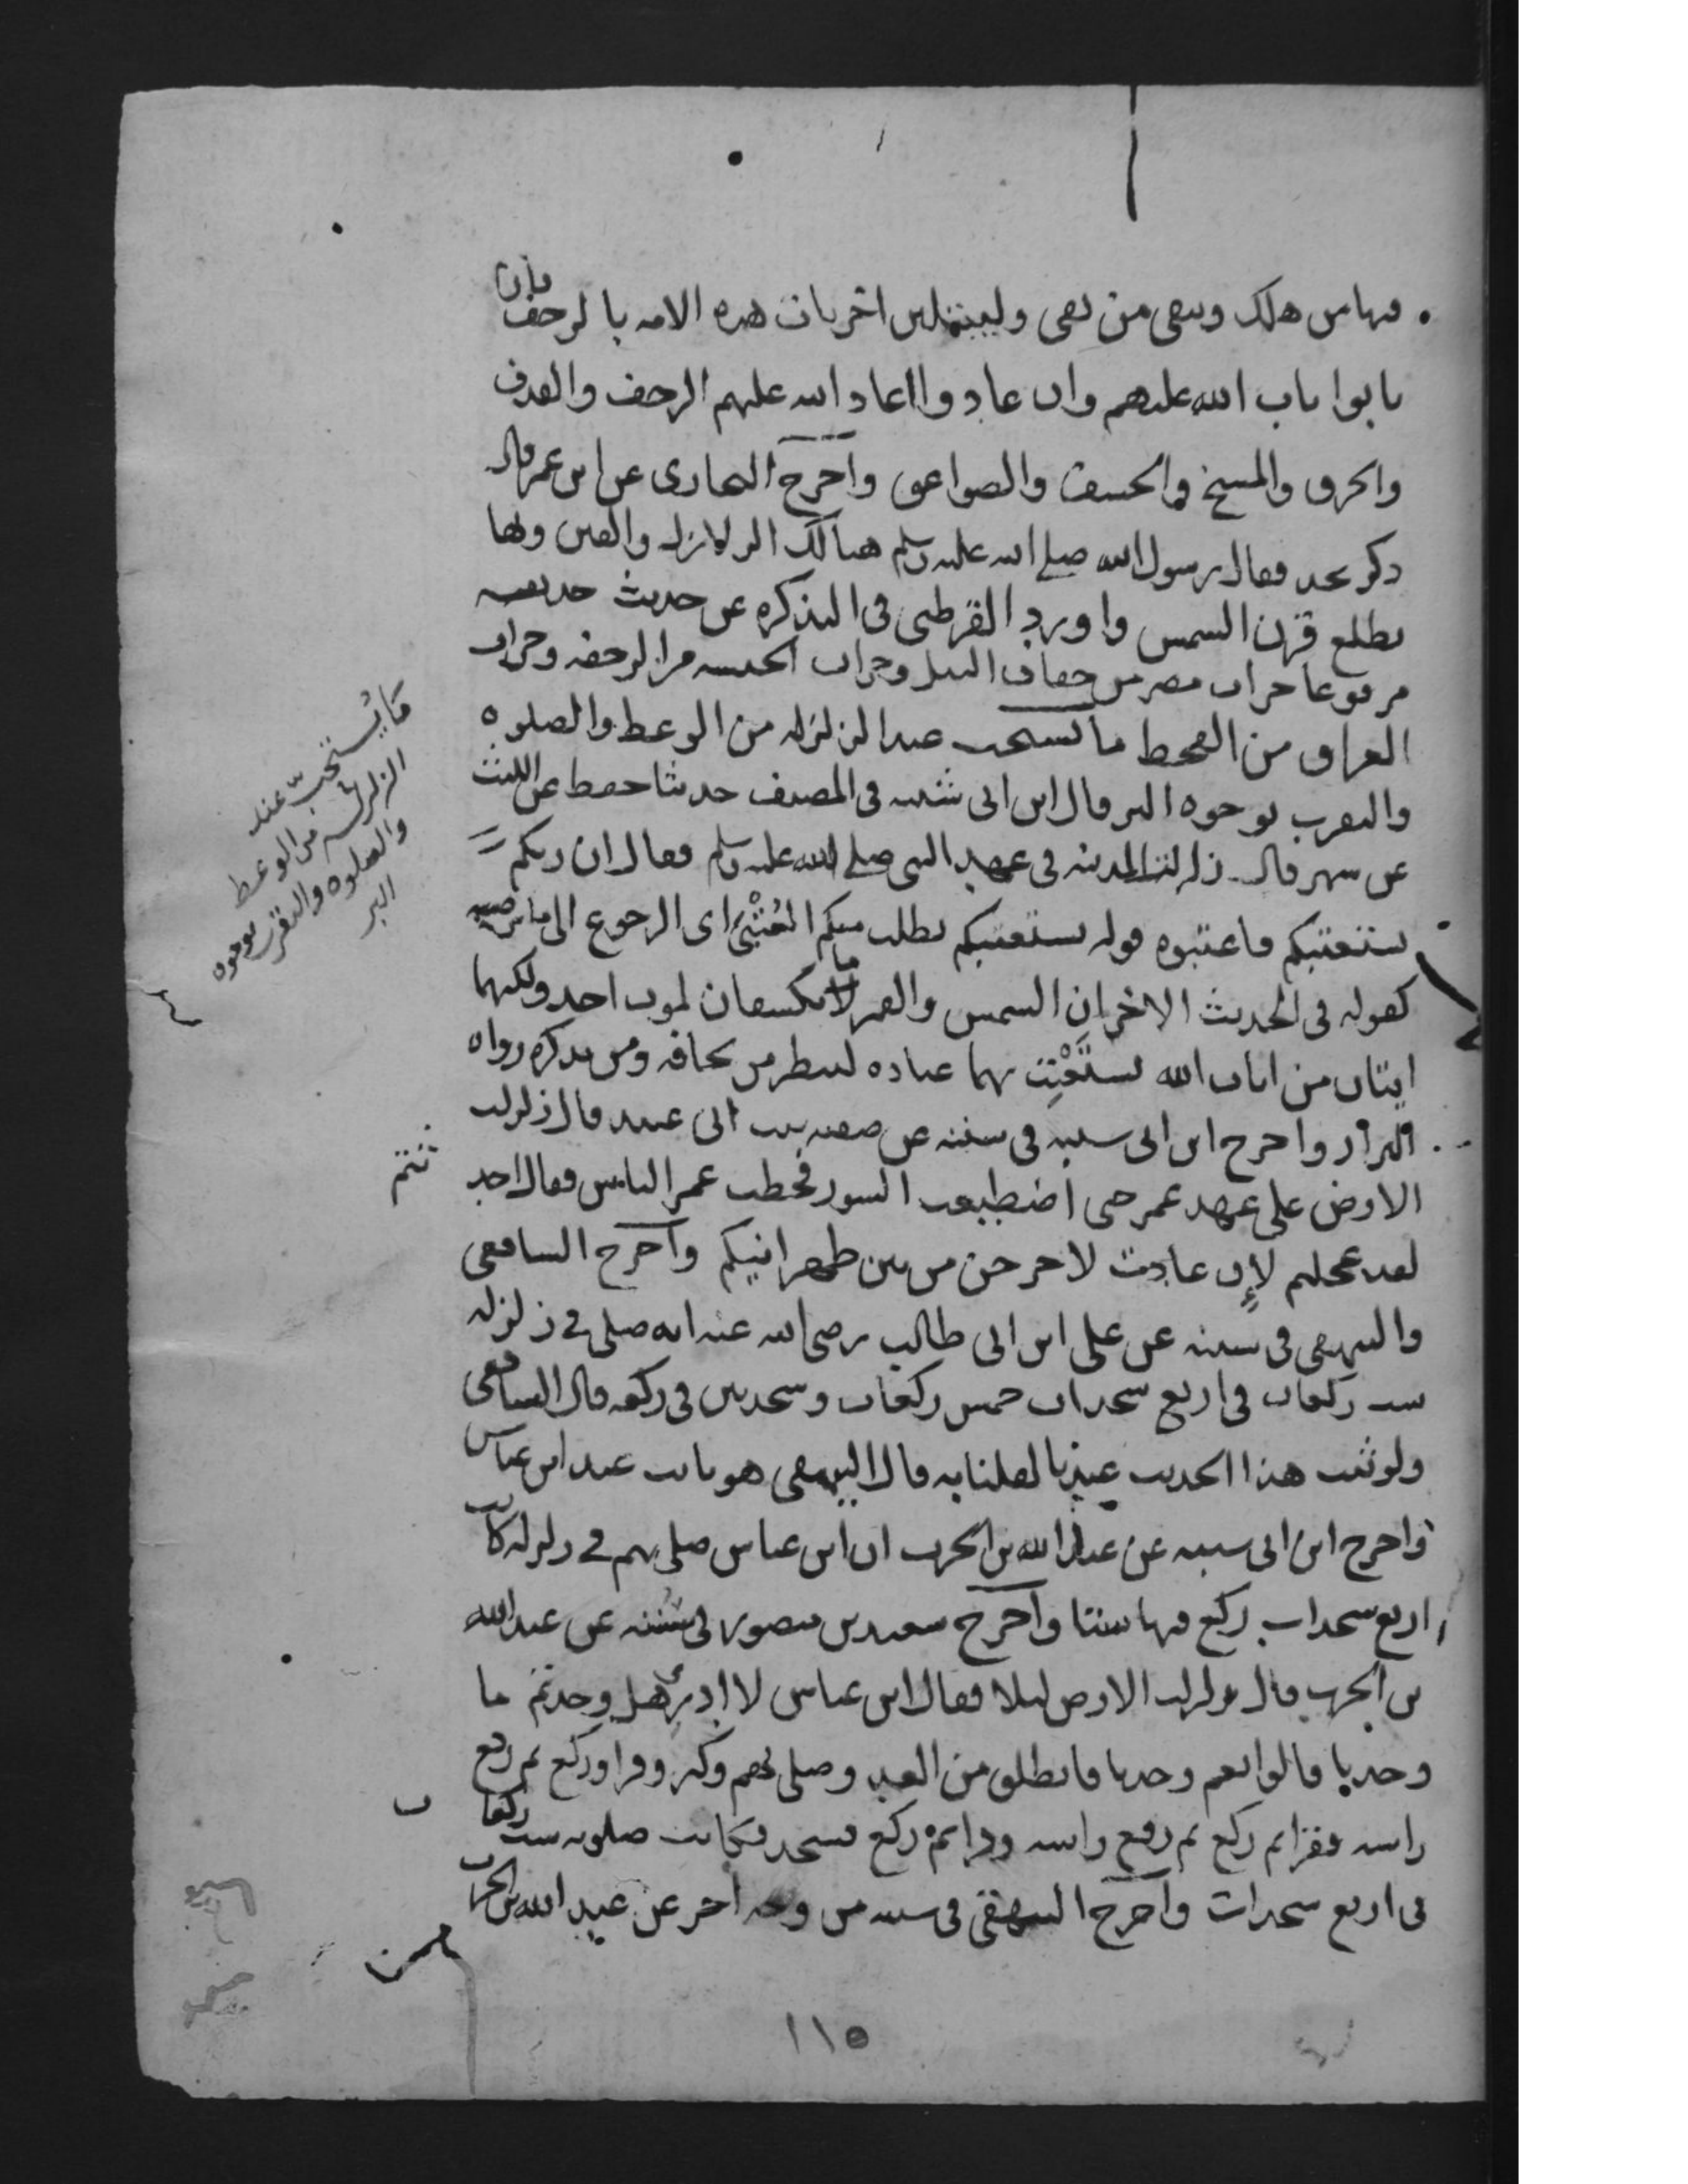 فيها من هلك وبقى من بقى وليبتلين اخريات هذه الامه بالرجف فان
تابوا تاب الله عليهم وان عادوا اعاد الله عليهم الرجف والقذف
والحرق والمسخ والخسف والصواعق واخرج البخارى عن ابن عمر قال
ذكر نجد فقال رسول الله صلى الله عليه وسلم هنالك الزلازل والفتن وبها
يطلع قرن الشمس واورد القرطبى فى التذكره عن حديث حذيفه
مرفوعا خراب مصر من جفاف النيل وخراب الحبشه من الرجفه وخراب
العراق من القحط ما يستحب عند الزلزله من الوعظ والصلوه
والتقرب بوجوه البر قال ابن ابى شيبه فى المصنف حدثنا حفص عن الليث
عن شهر قال زلزلت المدينه فى عهد النبى صلى الله عليه وسلم فقال ان ربكم
يستعتبكم فاعتبوه قوله يستعتبكم يطلب منكم العُتْبَى اى الرجوع الى ما يرضيه
كقوله فى الحديث الاخر ان الشمس والقمر لا يكسفان لموت احد ولكنهما
ايتان من ايات الله يستَعْتِب بهما عباده لينظر من يخافه ومن يذكره رواه
البزار واخرج ابن ابى شيبه فى سننه عن صفيه بنت ابى عبيد قال زلزلت
الارض على عهد عمر حتى اضطربت السور فخطب عمر الناس فقال احد
لقد عجلتم لإن عادت لاخرجن من بين ظهرانيكم واخرج الشافعى
والبيهقى فى سننه عن على ابن ابى طالب رضى الله عنه انه صلى فى زلزله
ست ركعات فى اربع سجدات خمس ركعات وسجدتين فى ركعه قال الشافعى
ولو ثبت هذا الحديث عندنا لقلنا به قال البيهقى هو ثابت عند ابن عباس
واخرج ابن ابى شيبه عن عبد الله بن الحرث ان ابن عباس صلى بهم فى زلزله كانت
اربع سجدات ركع فيها ستا واخرج سعيد بن منصور فى سننه عن عبد الله
بن الحرث قال زلزلت الارض ليلا فقال ابن عباس لا ادرى هل وجدتم ما
وجدنا قالوا نعم وجدنا فانطلق من الغد وصلى بهم وكبر وقرا وركع ثم رفع
راسه فقرا ثم ركع ثم رفع راسه وقرا ثم ركع فسجد فكانت صلوته ست ركعات
فى اربع سجدات واخرج البيهقى فى سننه من وجه اخر عن عبد الله بن الحرث
ما يستحبّ عند
الزلزله من الوعظ
والصلوه والتقرب بوجوه
البر
١١٥